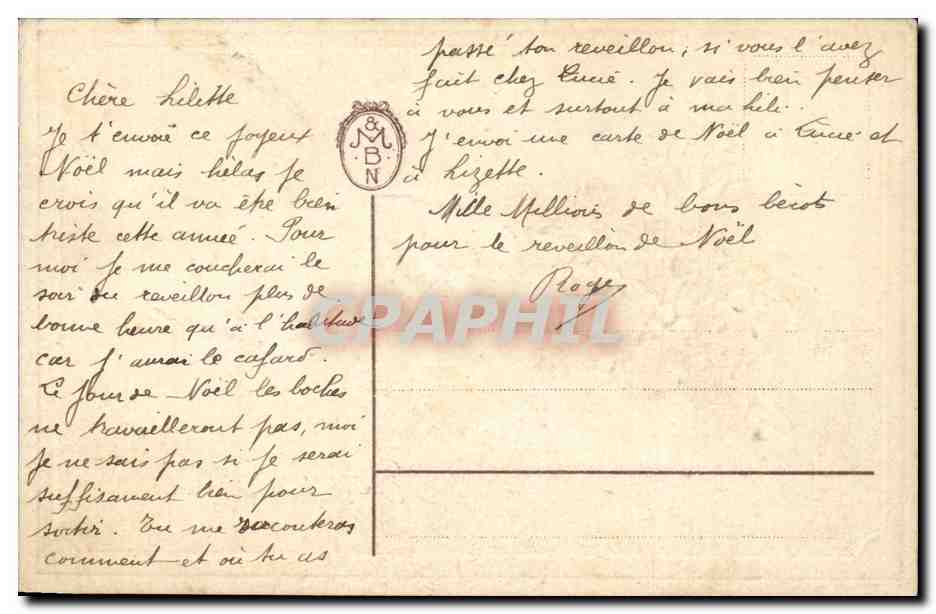 Chère Lilette
Je t'envoie ce joyeux
Noël mais hélas je
crois qu'il va être bien
triste cette année. Pour
moi je me coucherai le
soir du reveillon plus de
bonne heure qu'à l'habitude
car j'aurai le cafard.
Le jour de Noël les boches
ne travailleront pas, moi
je ne sais pas si je serai
suffisament bien pour
sortir. Tu me raconteras
comment et où tu as
passé ton reveillon, si vous l'avez
fait chez Lucie. Je vais bien penser
à vous et surtout à ma lili.
J'envoi une carte de Noël à Lucie et
à Lizette.
Mille Millions de bons bécots
pour le reveillon de Noël
Roger
&
M
B
N
CPAPHIL